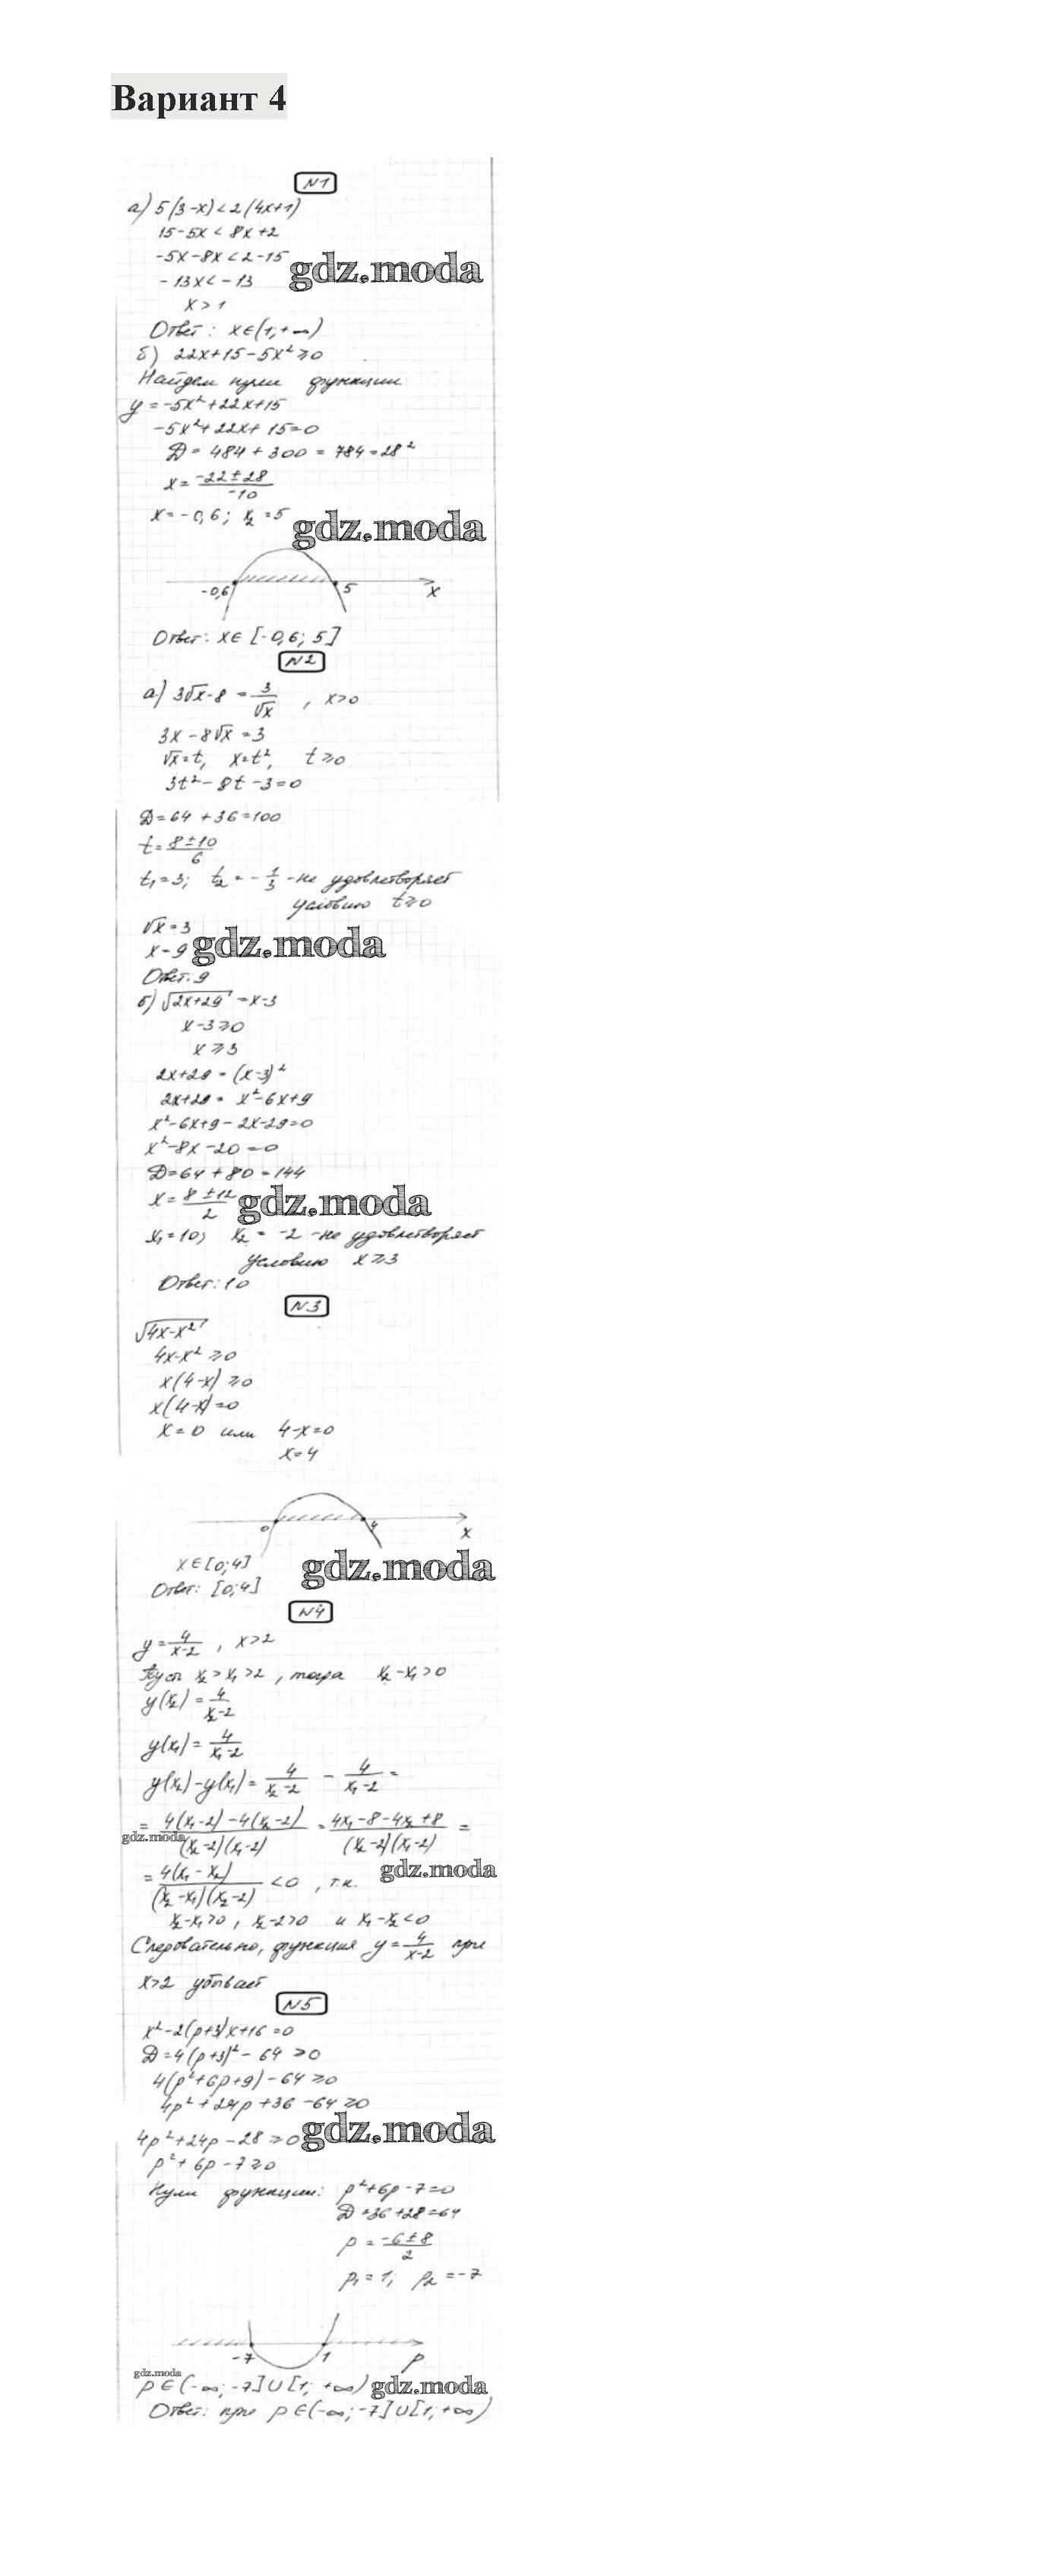 Вариант 4
N1
а) 5(3-x)<2(4x+1)
15-5x<8x+2
-5x-8x<2-15
gdz.moda
-13x<-13
x>1
Ответ: x∈(1;+∞)
б) 22x+15-5x²⩾0
Найдем нули функции
y=-5x²+22x+15
-5x²+22x+15=0
D=484+300=784=28²
x=(-22±28)/(-10)
x=-0,6; x₂=5
gdz.moda
-0,6 5 x
Ответ: x∈[-0,6; 5]
N2
а) 3√x-8=3/√x, x>0
3x-8√x=3
√x=t, x=t², t⩾0
3t²-8t-3=0
D=64+36=100
t=(8±10)/6
t₁=3; t₂=-1/3 -не удовлетворяет
условию t⩾0
√x=3
x=9
gdz.moda
Ответ: 9
б) √(2x+29)=x-3
x-3⩾0
x⩾3
2x+29=(x-3)²
2x+29=x²-6x+9
x²-6x+9-2x-29=0
x²-8x-20=0
D=64+80=144
x=(8±12)/2
gdz.moda
x₁=10; x₂=-2 -не удовлетворяет
условию x⩾3
Ответ: 10
N3
√(4x-x²)
4x-x²⩾0
x(4-x)⩾0
x(4-x)=0
x=0 или 4-x=0
x=4
0 4 x
x∈[0;4]
gdz.moda
Ответ: [0;4]
N4
y=4/(x-2), x>2
Пусть x₂>x₁>2, тогда x₂-x₁>0
y(x₂)=4/(x₂-2)
y(x₁)=4/(x₁-2)
y(x₂)-y(x₁)=4/(x₂-2)-4/(x₁-2)=
=(4(x₁-2)-4(x₂-2))/((x₂-2)(x₁-2))=(4x₁-8-4x₂+8)/((x₂-2)(x₁-2))=
gdz.moda
gdz.moda
=4(x₁-x₂)/((x₂-x₁)(x₂-2))<0, т.к.
x₂-x₁>0, x₂-2>0 и x₁-x₂<0
Следовательно, функция y=4/(x-2) при
x>2 убывает
N5
x²-2(p+3)x+16=0
D=4(p+3)²-64⩾0
4(p²+6p+9)-64⩾0
4p²+24p+36-64⩾0
4p²+24p-28⩾0
gdz.moda
p²+6p-7⩾0
Нули функции: p²+6p-7=0
D=36+28=64
p=(-6±8)/2
p₁=1; p₂=-7
-7 1 p
gdz.moda
p∈(-∞;-7]∪[1;+∞)
gdz.moda
Ответ: при p∈(-∞;-7]∪[1;+∞)